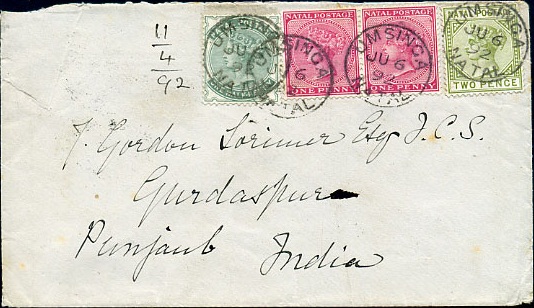 11
4
92
UMSINGA
JU 6
92
NATAL
UMSINGA
6
NATAL
NATAL POSTAGE
ONE PENNY
NATAL POSTAGE
ONE PENNY
UMSINGA
JU 6
92
NATAL
UMSINGA
JU 6
NATAL
TWO PENCE
J. Gordon Lorimer Esq I.C.S.
Gurdaspur
Punjaub India